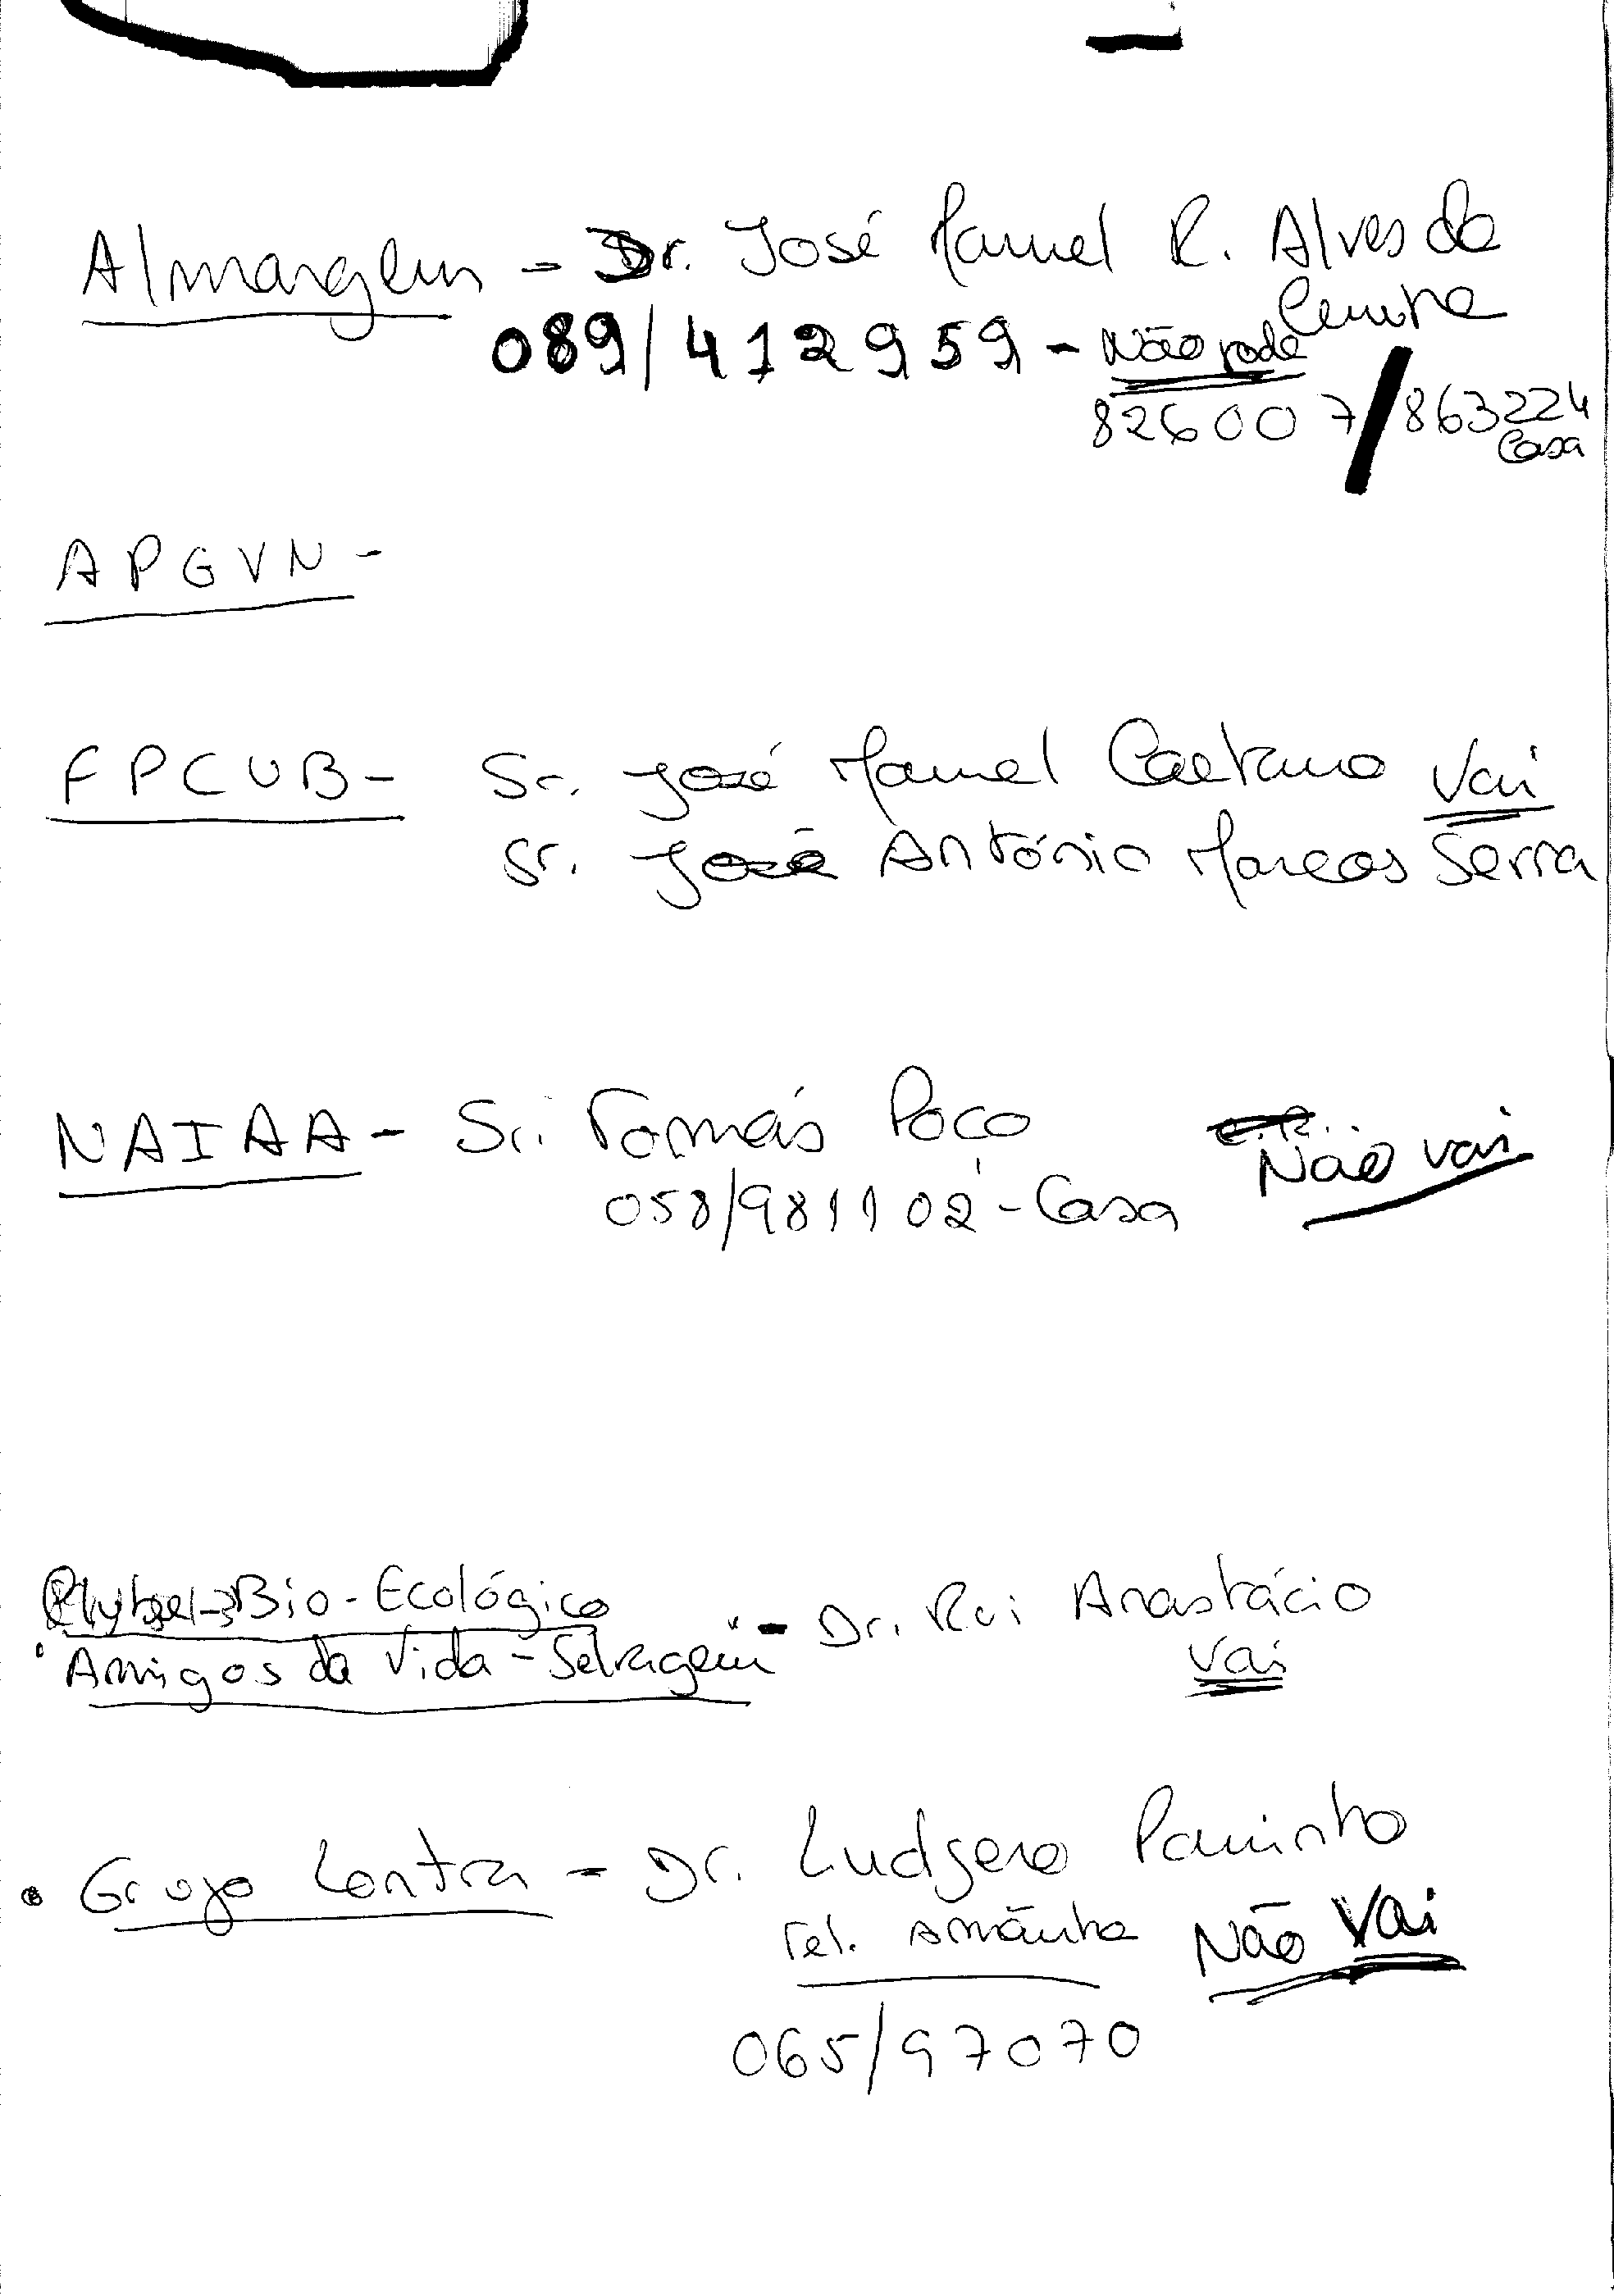 Almargem - Dr. José Manuel R. Alves da
Cunha
089/412959 - Não pode
826007/863224
Casa
APGVN -
FPCUB - Sr. José Manuel Caetano Vai
Sr. José António Marcos Serra
NAIAA - Sr. Tomás Poço
Não vai
058/981102 - Casa
Bio-Ecológico
"Amigos da Vida-Selvagem" - Dr. Rui Anastácio
Vai
Grupo Lontra - Dr. Ludgero Paninho
Tel. Amãnha Não Vai
065/97070